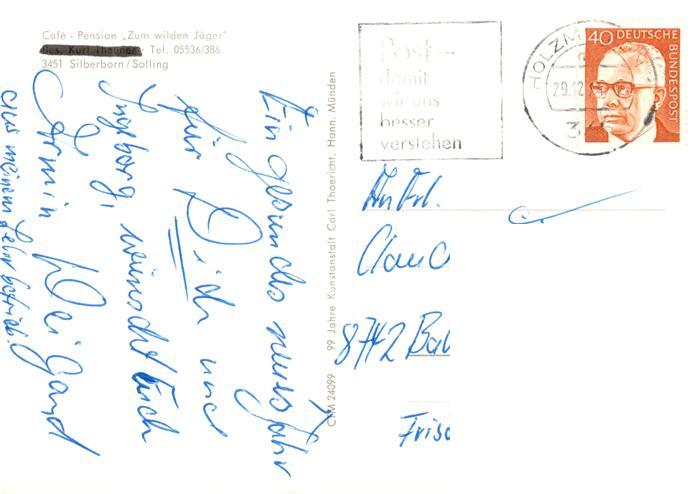 Café - Pension „Zum wilden Jäger"
Bes. Kurt Tel. 05536/386
3451 Silberborn/Solling
Ein gesundes neues Jahr
für Dich und
Ingborg, wünscht Euch
Armin Weigand
aus meinem Lehrbetrieb!
CTM 24099 99 Jahre Kunstanstalt Carl Thoericht, Hann. Münden
Post-
damit
wir uns
besser
verstehen
HOLZM
29.12
3
40 DEUTSCHE
BUNDESPOST
An Frl.
Claud
8742 Bad
Fris